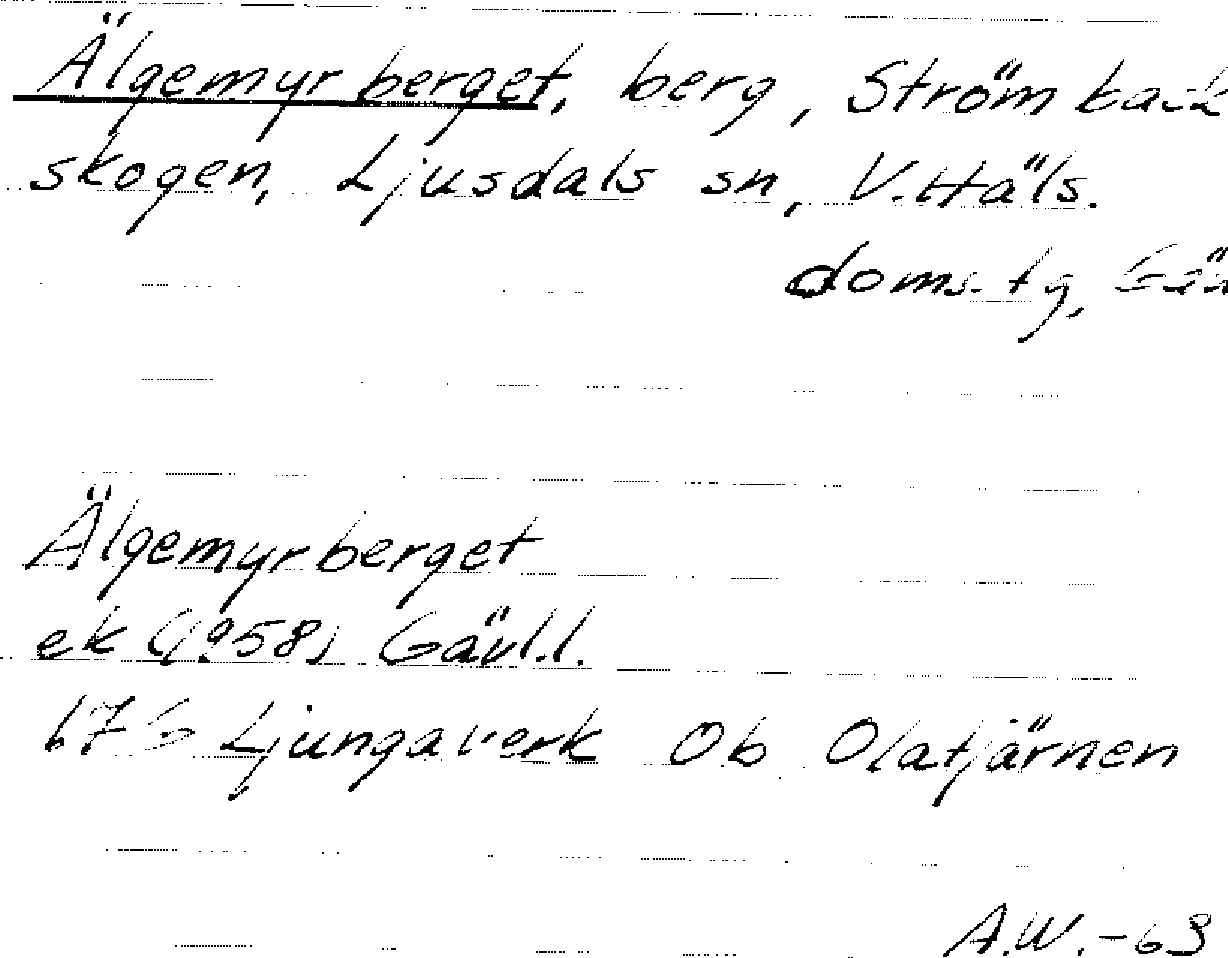 Älgemyrberget, berg, Strömback
skogen, Ljusdals sn, V.Häls.
doms.tg,
Älgemyrberget
ek (1958) Gävl.l.
Ljungaverk Ob Olatjärnen
A.W.-63